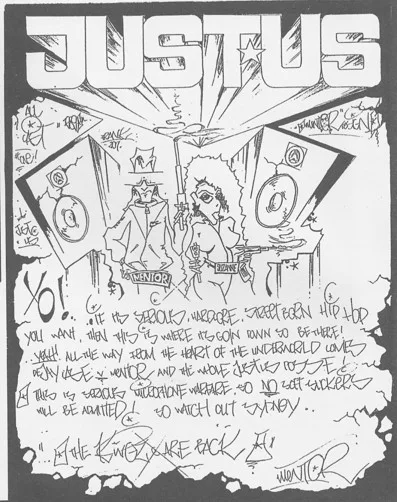 JUST★US
FRANK
MENTOR
SUZANNE
YO!
...IF ITS SERIOUS, HARDCORE, STREET BORN HIP HOP
YOU WANT, THEN THIS IS WHERE ITS GOIN DOWN SO BE THERE!
..YEAH! ALL THE WAY FROM THE HEART OF THE UNDERWORLD COMES
DEEJAY CASE & MENTOR AND THE WHOLE JUSTUS POSSE!
THIS IS SERIOUS MICROPHONE WARFARE, SO NO SOFT SUCKERS
WILL BE ADMITTED! SO WATCH OUT SYDNEY...
"..THE KINGZ ARE BACK"
MENTOR